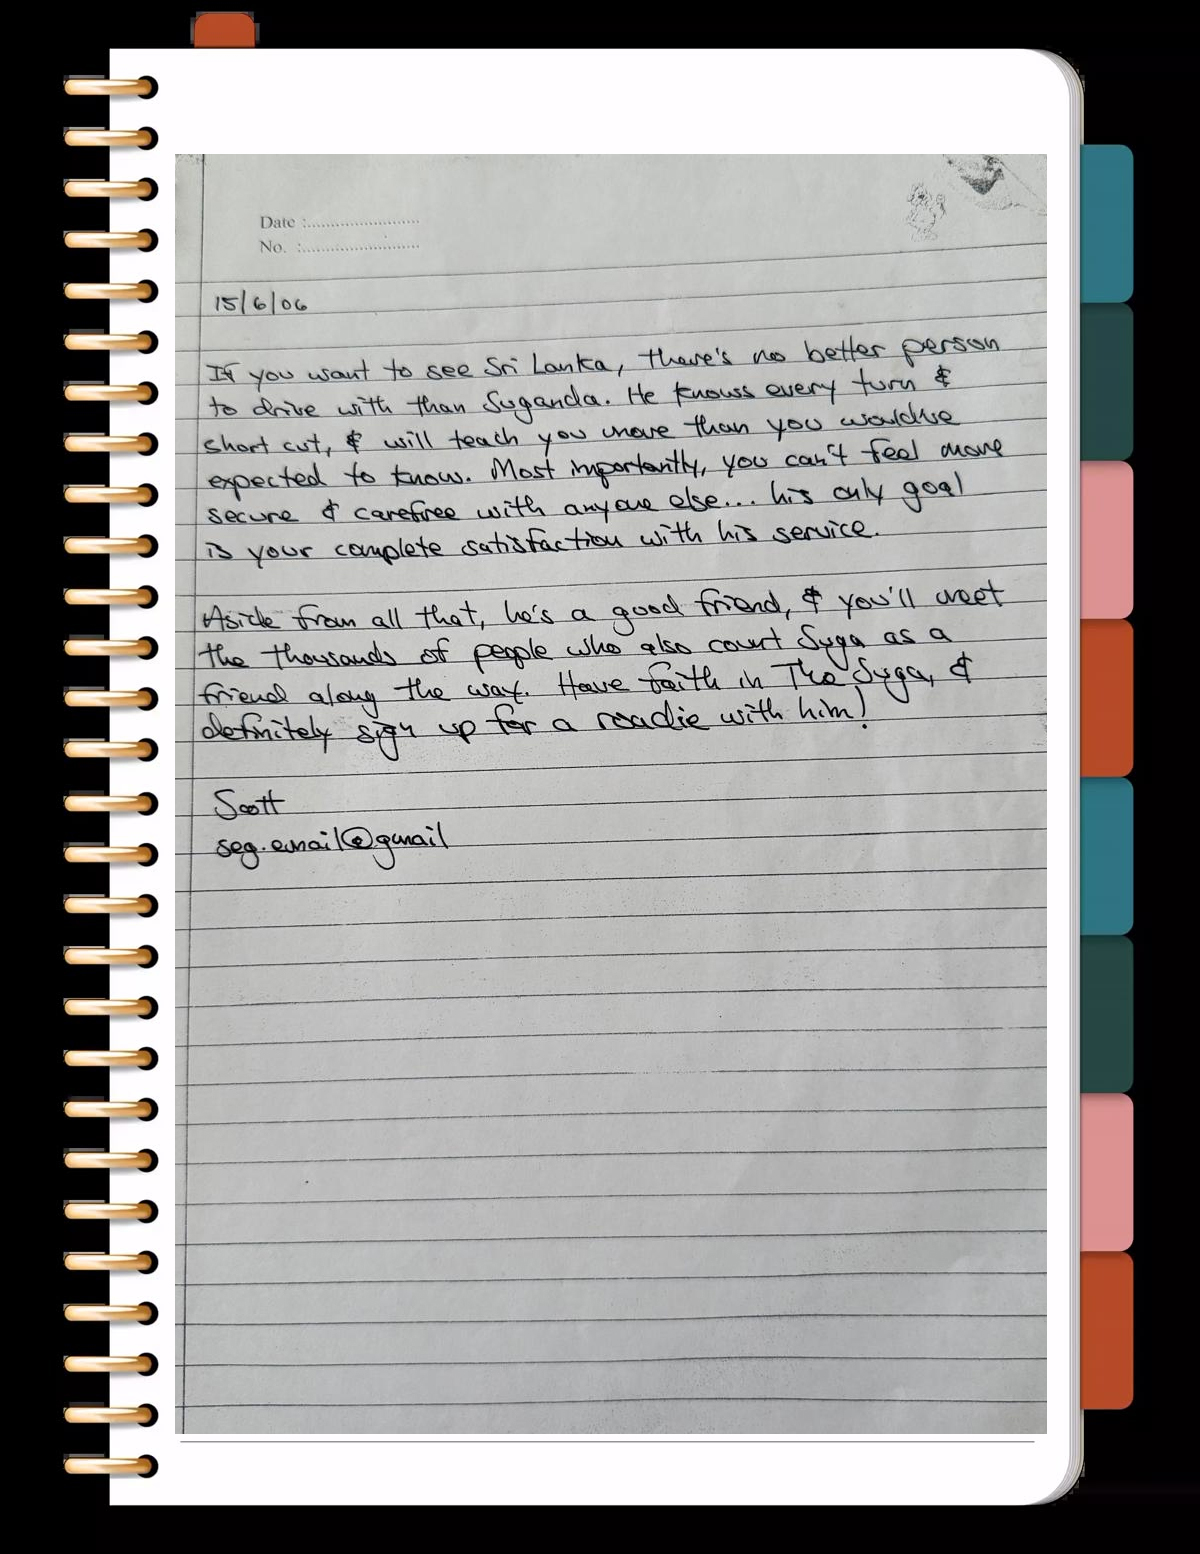 Date :........................
No. :........................
15/6/06
If you want to see Sri Lanka, there's no better person
to drive with than Suganda. He knows every turn &
short cut, & will teach you more than you would've
expected to know. Most importantly, you can't feel more
secure & carefree with anyone else... his only goal
is your complete satisfaction with his service.
Aside from all that, he's a good friend, & you'll meet
the thousands of people who also count Suga as a
friend along the way. Have faith in The Suga, &
definitely sign up for a roadie with him!
Scott
seg.email@gmail